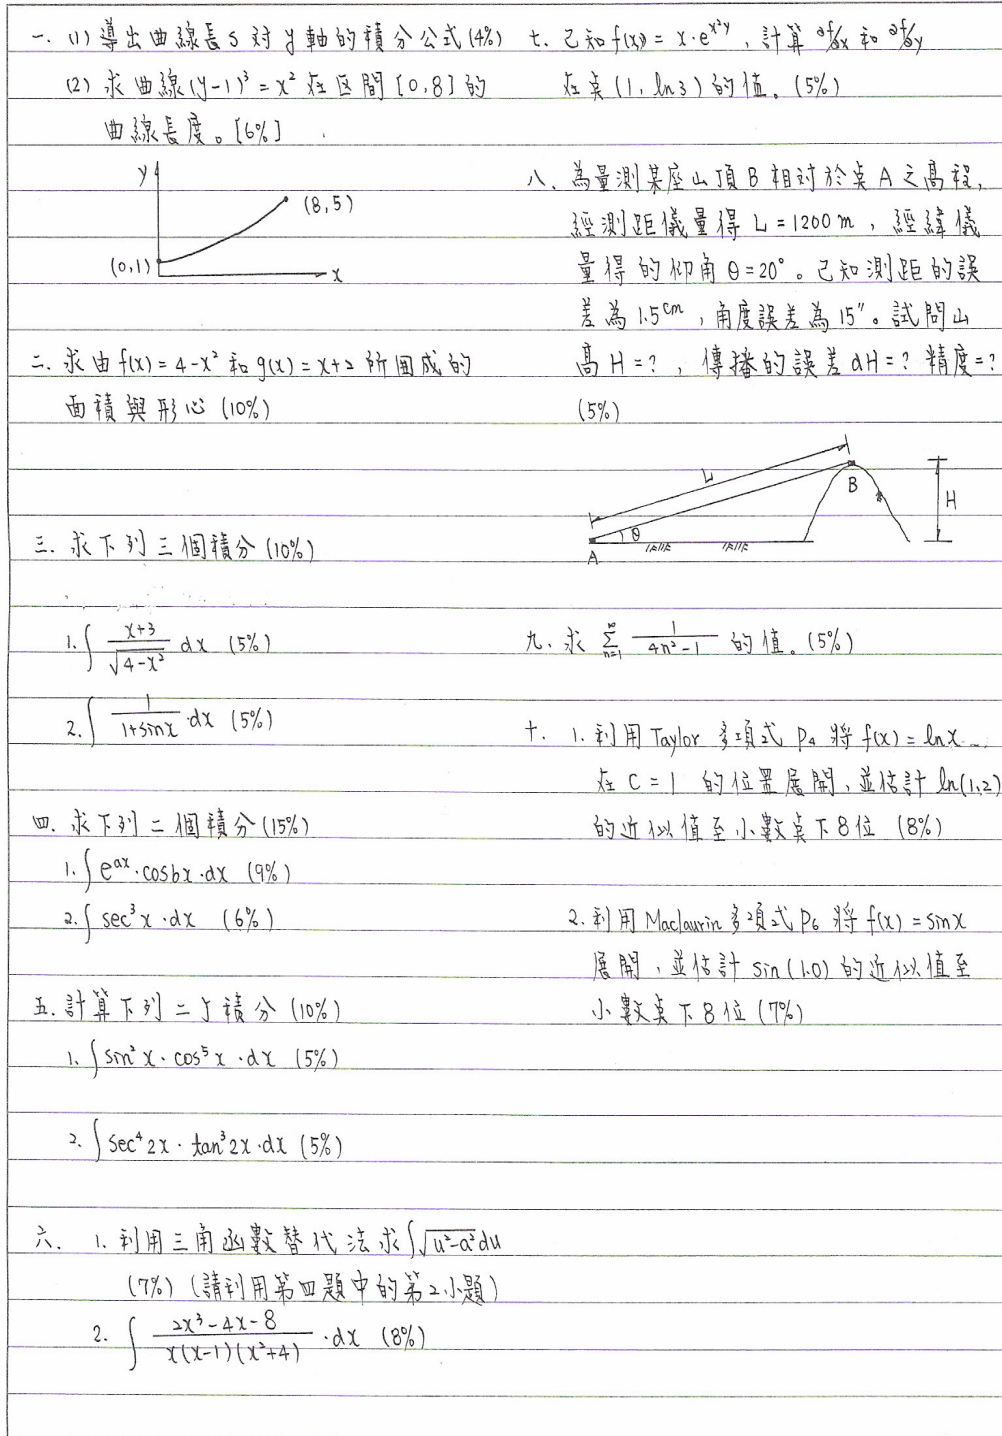 一、(1) 導出曲線長 S 對 y 軸的積分公式 (4%)
(2) 求曲線 (y-1)³ = x² 在区間 [0,8] 的
曲線長度。[6%]
y
(8,5)
(0,1)
x
二、求由 f(x) = 4-x² 和 g(x) = x+2 所围成的
面積與形心 (10%)
三、求下列三個積分 (10%)
1. ∫ (x+3)/√(4-x²) dx (5%)
2. ∫ 1/(1+sinx) ·dx (5%)
四、求下列二個積分 (15%)
1. ∫ e^(ax)·cosbx·dx (9%)
2. ∫ sec³x·dx (6%)
五、計算下列二個積分 (10%)
1. ∫ sin²x·cos⁵x·dx (5%)
2. ∫ sec⁴2x·tan³2x·dx (5%)
六、1. 利用三角函數替代法求 ∫√(u²-a²) du
(7%) (請利用第四題中的第2小題)
2. ∫ (2x³-4x-8)/(x(x-1)(x²+4)) ·dx (8%)
七、已知 f(x,y) = x·e^(x²y)，計算 ∂f/∂x 和 ∂f/∂y
在点 (1, ln3) 的值。(5%)
八、為量測某座山頂 B 相対於点 A 之高程，
經測距儀量得 L = 1200 m，經緯儀
量得的仰角 θ = 20°。已知測距的誤
差為 1.5cm，角度誤差為 15″。試問山
高 H = ?，傳播的誤差 dH = ? 精度 = ?
(5%)
L
B
H
θ
A
九、求 ∑_(n=1)^∞ 1/(4n²-1) 的值。(5%)
十、1. 利用 Taylor 多項式 P₄ 將 f(x) = lnx
在 C = 1 的位置展開，並估計 ln(1.2)
的近似值至小數点下 8 位 (8%)
2. 利用 Maclaurin 多項式 P₆ 將 f(x) = sinx
展開，並估計 sin(1.0) 的近似值至
小數点下 8 位 (7%)